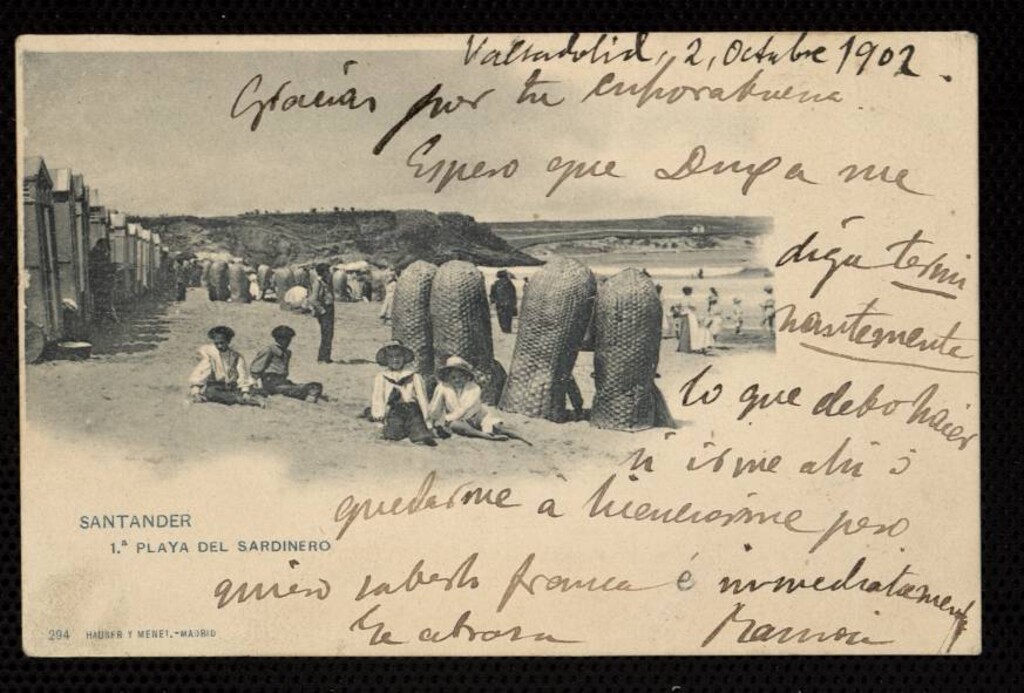 Valladolid, 2, Octubre 1902.
Gracias por tu enhorabuena.
Espero que Duga me
diga termi
nantemente
lo que debo hacer
si irme ahi ó
quedarme á licenciarme pero
quiero saberlo franca é inmediatamente
Te abraza Ramon
SANTANDER
1.ª PLAYA DEL SARDINERO
294 HAUSER Y MENET.-MADRID